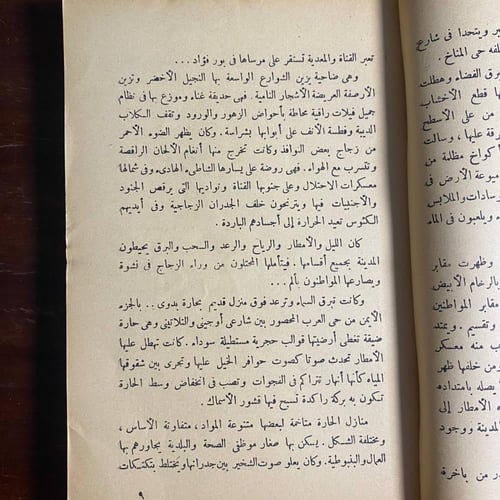 تعبر القناة والمعدية تستقر على مرساها فى بور فؤاد...
وهى ضاحية يزين الشوارع الواسعة بها النجيل الأخضر وتزين
الأرصفة العريضة الأشجار النامية. فهى حديقة غناء وموزع بها فى نظام
جميل فيلات راقية محاطة بأحواض الزهور والورود وتقف الكلاب
الدببة وفطسة الأنف على أبوابها بشراسة. وكان يظهر الضوء الأحمر
من زجاج بعض النوافذ وكانت تخرج منها أنغام الألحان الراقصة
وتتسرب مع الهواء. فهى روضة على يسارها الشاطىء الهادىء وفى شمالها
معسكرات الاحتلال وعلى جنوبها القناة ونواديها التى يرقص الجنود
والأجنبيات فيها ويترنحون خلف الجدران الزجاجية وفى أيديهم
الكئوس تعيد الحرارة إلى أجسادهم الباردة.
كان الليل والأمطار والرياح والرعد والسحب والبرق يحيطون
المدينة بجميع أقسامها. فيتأملها المحتلون من وراء الزجاج فى نشوة
ويصارعها المواطنون بألم...
وكانت تبرق السماء وترعد فوق منزل قديم بحارة بدوى.. بالجزء
الأيمن من حى العرب المحصور بين شارعى أوجينى والثلاثينى وهى حارة
ضيقة تغطى أرضيتها قوالب حجرية مستطيلة سوداء. كانت تهطل عليها
الأمطار تحدث صوتا كصوت حوافر الخيل عليها وتجرى بين شقوقها
المياه كأنها أنهار تتراكم فى الفجوات وتصب فى انخفاض وسط الحارة
تكون به بركة راكدة تسبح فيها قشور الأسماك.
منازل الحارة متاخمة لبعضها متنوعة المواد، متفاوتة الأساس،
ومختلفة الشكل. يسكن بها صغار موظفى الصحة والبلدية يجاورهم بها
العمال والبنبوطية. وكان يعلو صوت الشخير بين جدرانها ويختلط بتكتكات
٩
ير ويتحدا فى شارع
لفه حى المناخ.
برق الفضاء وهطلت
بها قطع الأخشاب
من على الأسطح
رقة عليها، وسالت
أكواخ مظلمة من
بوعة الأرض فى
رسادات والملابس
ويلعبون فى الماء
وظهرت مقابر
بالرخام الأبيض
مقابر المواطنين
وتقسيم. ويمتد
ب منه معسكر
ومن خلفها ظهر
يصله بامتداده.
الأمطار إلى
لمدينة ووجود
در من باخرة